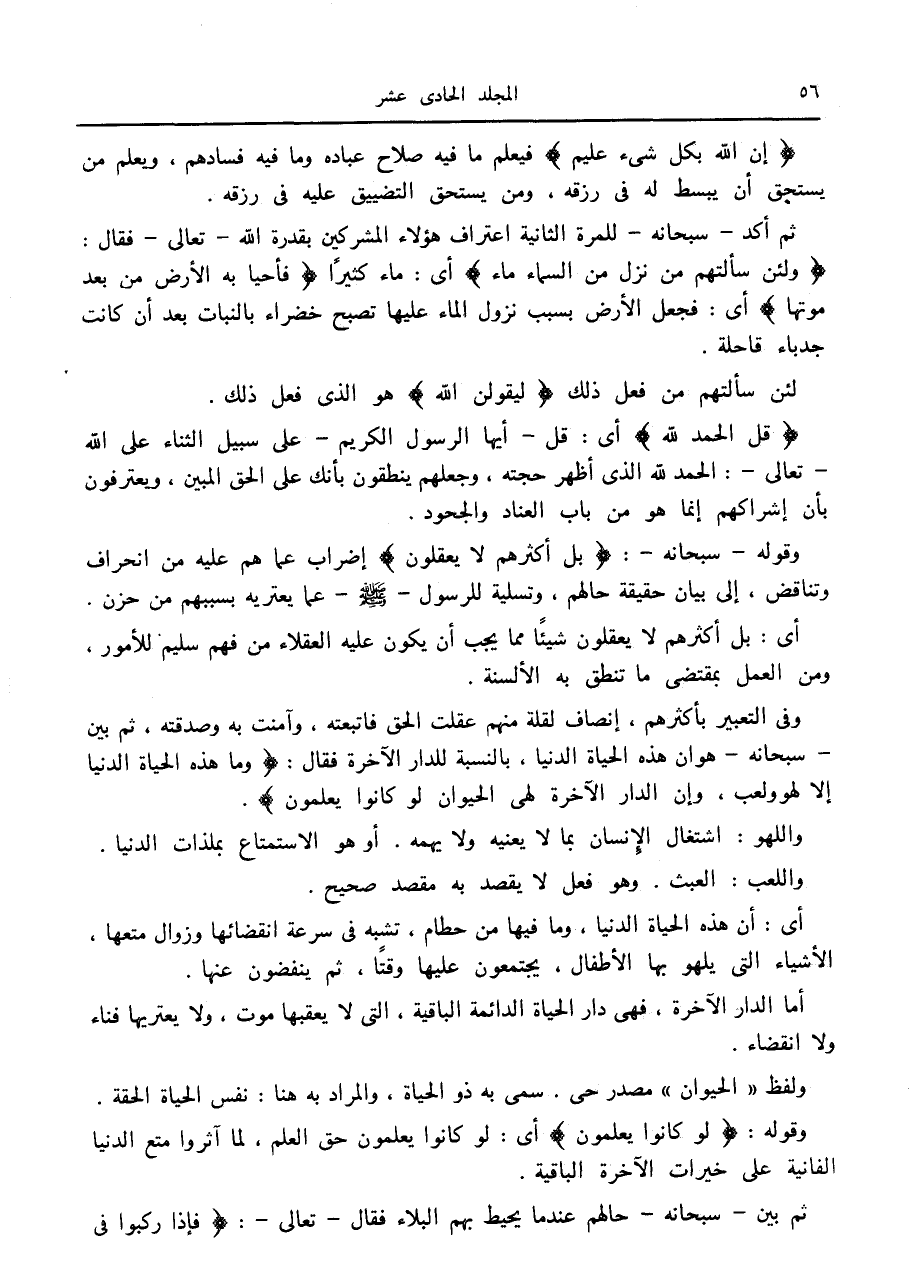 ٥٦
المجلد الحادى عشر
﴿ إن الله بكل شىء عليم ﴾ فيعلم ما فيه صلاح عباده وما فيه فسادهم ، ويعلم من
يستحق أن يبسط له فى رزقه ، ومن يستحق التضييق عليه فى رزقه .
ثم أكد – سبحانه – للمرة الثانية اعتراف هؤلاء المشركين بقدرة الله – تعالى – فقال :
﴿ ولئن سألتهم من نزل من السماء ماء ﴾ أى : ماء كثيرًا ﴿ فأحيا به الأرض من بعد
موتها ﴾ أى : فجعل الأرض بسبب نزول الماء عليها تصبح خضراء بالنبات بعد أن كانت
جدباء قاحلة .
لئن سألتهم من فعل ذلك ﴿ ليقولن الله ﴾ هو الذى فعل ذلك .
﴿ قل الحمد لله ﴾ أى : قل – أيها الرسول الكريم – على سبيل الثناء على الله
– تعالى – : الحمد لله الذى أظهر حجته ، وجعلهم ينطقون بأنك على الحق المبين ، ويعترفون
بأن إشراكهم إنما هو من باب العناد والجحود .
وقوله – سبحانه – : ﴿ بل أكثرهم لا يعقلون ﴾ إضراب عما هم عليه من انحراف
وتناقض ، إلى بيان حقيقة حالهم ، وتسلية للرسول – ﷺ – عما يعتريه بسببهم من حزن .
أى : بل أكثرهم لا يعقلون شيئًا مما يجب أن يكون عليه العقلاء من فهم سليم للأمور ،
ومن العمل بمقتضى ما تنطق به الألسنة .
وفى التعبير بأكثرهم ، إنصاف لقلة منهم عقلت الحق فاتبعته ، وآمنت به وصدقته ، ثم بين
– سبحانه – هوان هذه الحياة الدنيا ، بالنسبة للدار الآخرة فقال : ﴿ وما هذه الحياة الدنيا
إلا لهو ولعب ، وإن الدار الآخرة لهى الحيوان لو كانوا يعلمون ﴾ .
واللهو : اشتغال الإنسان بما لا يعنيه ولا يهمه . أو هو الاستمتاع بملذات الدنيا .
واللعب : العبث . وهو فعل لا يقصد به مقصد صحيح .
أى : أن هذه الحياة الدنيا ، وما فيها من حطام ، تشبه فى سرعة انقضائها وزوال متعها ،
الأشياء التى يلهو بها الأطفال ، يجتمعون عليها وقتًا ، ثم ينفضون عنها .
أما الدار الآخرة ، فهى دار الحياة الدائمة الباقية ، التى لا يعقبها موت ، ولا يعتريها فناء
ولا انقضاء .
ولفظ « الحيوان » مصدر حى . سمى به ذو الحياة ، والمراد به هنا : نفس الحياة الحقة .
وقوله : ﴿ لو كانوا يعلمون ﴾ أى : لو كانوا يعلمون حق العلم ، لما آثروا متع الدنيا
الفانية على خيرات الآخرة الباقية .
ثم بين – سبحانه – حالهم عندما يحيط بهم البلاء فقال – تعالى – : ﴿ فإذا ركبوا فى